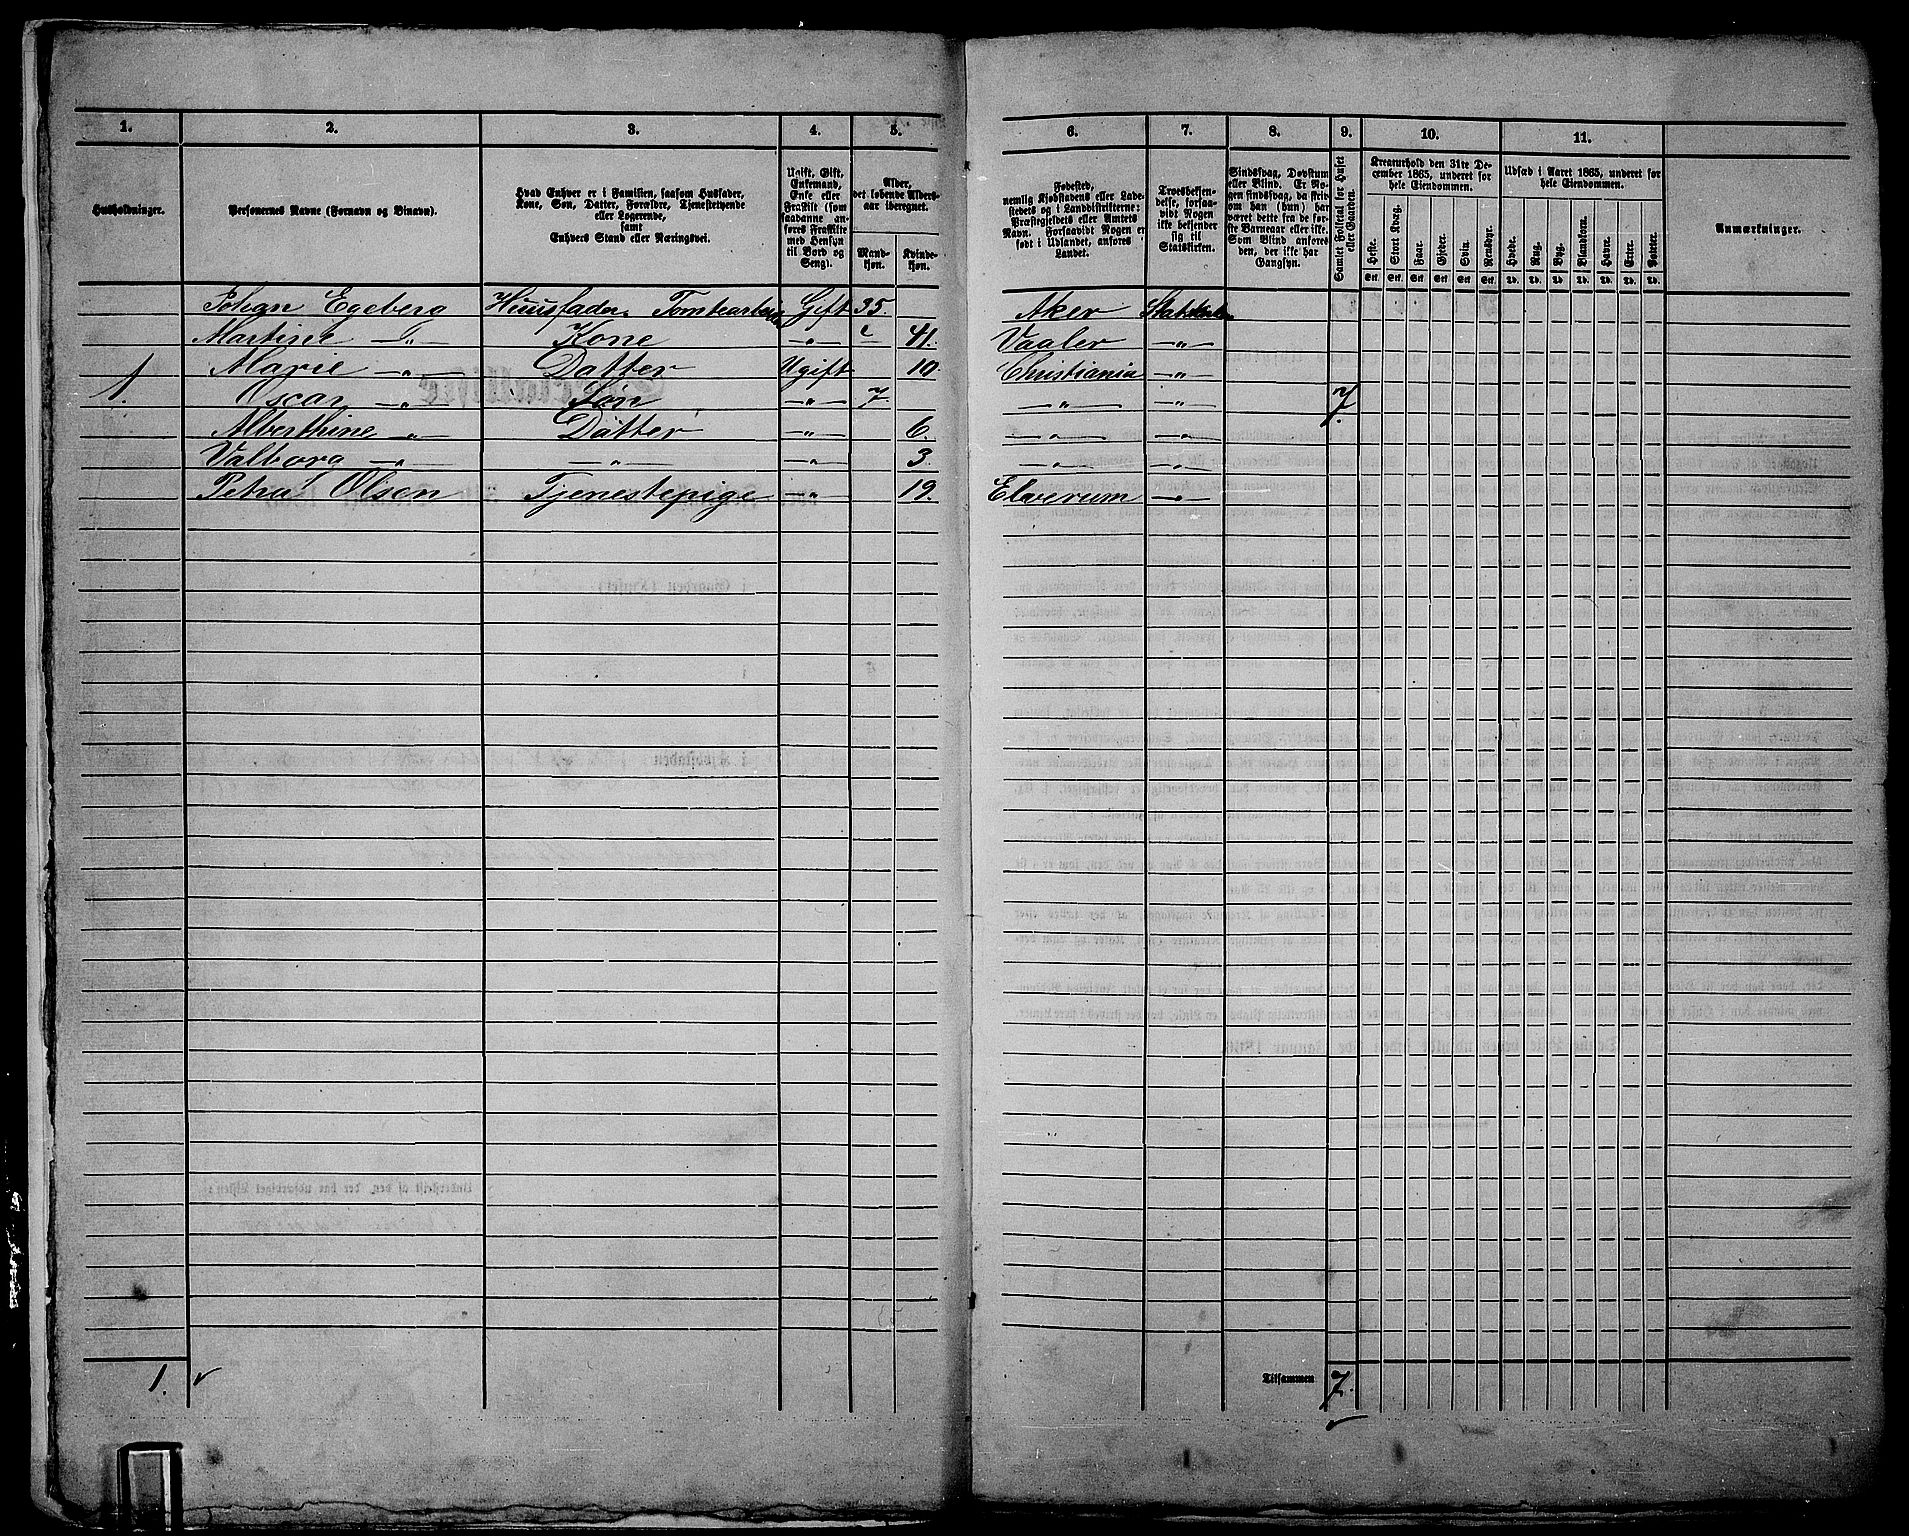 1. 2. 3. 4. 5. 6. 7. 8. 9. 10. 11.
Husholdninger.
Personernes Navne (Fornavn og Binavn).
Hvad Enhver er i Familien, saasom Husfader,
Kone, Søn, Datter, Forældre, Tjenestetyende
eller Logerende,
samt
Enhvers Stand eller Næringsvei.
Ugift, Gift,
Enkemand,
Enke eller
Fraskilt (som
saadanne an-
føres Fraskilte
med Hensyn
til Bord og
Seng).
Alder,
det løbende Alders-
aar iberegnet.
Mand-
kjøn.
Kvinde-
kjøn.
Fødested,
nemlig Kjøbstadens eller Lade-
stedets og i Landdistrikterne:
Præstegjeldets eller Amtets
Navn. Forsaavidt Nogen er
født i Udlandet, anføres
Landet.
Troesbekjen-
delse, forsaa-
vidt Nogen
ikke bekjender
sig til
Statskirken.
Sindssvag, Døvstum
eller Blind. Er No-
gen sindssvag, da skriv
om han (hun) har
været dette fra de før-
ste Barneaar eller ikke.
Som Blind anføres
den, der ikke har
Gangsyn.
Samlet Folketal for Huset
eller Gaarden.
Kreaturhold den 31te De-
cember 1865, underet for
hele Eiendommen.
Heste. Stort Kvæg. Faar. Gjeder. Svin. Rensdyr.
Udsæd i Aaret 1865, underet for
hele Eiendommen.
Hvede. Rug. Byg. Blandkorn. Havre. Erter. Poteter.
Anmærkninger.
Johan Egeberg Huusfader. Gift 35. Aker
Martine —"— Kone —"— 41. Vaaler —"—
Marie —"— Datter Ugift 10 Christiania —"—
1. Oscar —"— Søn —"— 7. —"— —"— 7.
Alberthine —"— Datter —"— 6. —"— —"—
Valborg —"— —"— —"— 3. —"— —"—
Petra Olsen Tjenestepige —"— 19. Elverum —"—
1. Tilsammen 7.